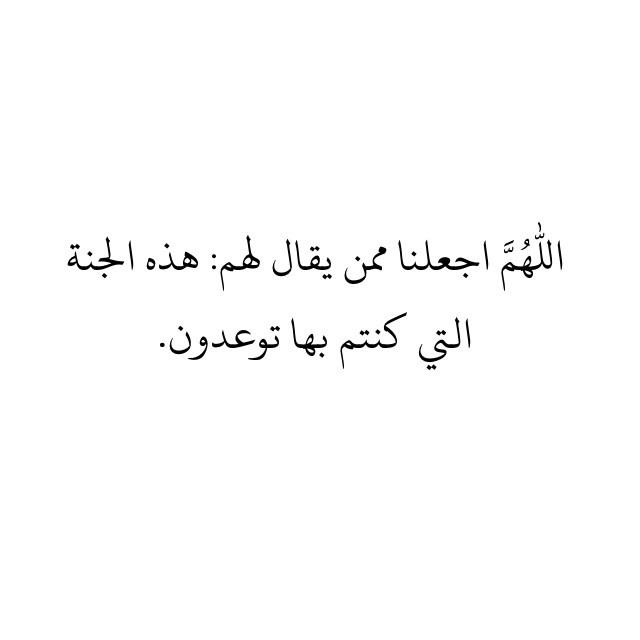 اللّٰهُمَّ اجعلنا ممن يقال لهم: هذه الجنة
التي كنتم بها توعدون.